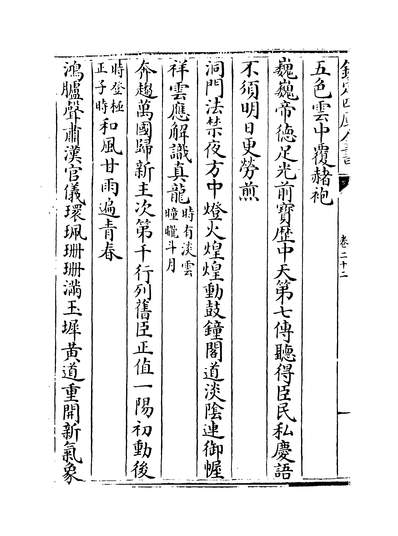 欽定四庫全書
卷二十二
五色雲中覆赭袍
巍巍帝德足光前寶歴中天第七傳聽得臣民私慶語
不須明日更勞煎
洞門法禁夜方中燈火煌煌動鼓鐘閣道淡陰連御幄
祥雲應解識真龍時有淡雲朣朧斗月
奔趨萬國歸新主次第千行列舊臣正值一陽初動後
時登極正子時和風甘雨遍青春
鴻臚聲肅漢官儀環珮珊珊滿玉墀黄道重開新氣象